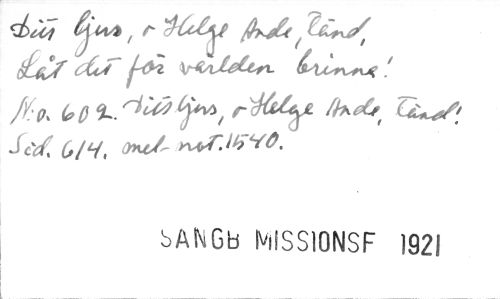 Ditt ljus, o Helge Ande, tänd,
Låt det för världen brinna!
N:o. 602. Ditt ljus, o Helge Ande, tänd!
Sid. 614. mel-not. 1540.
SANGB MISSIONSF 1921